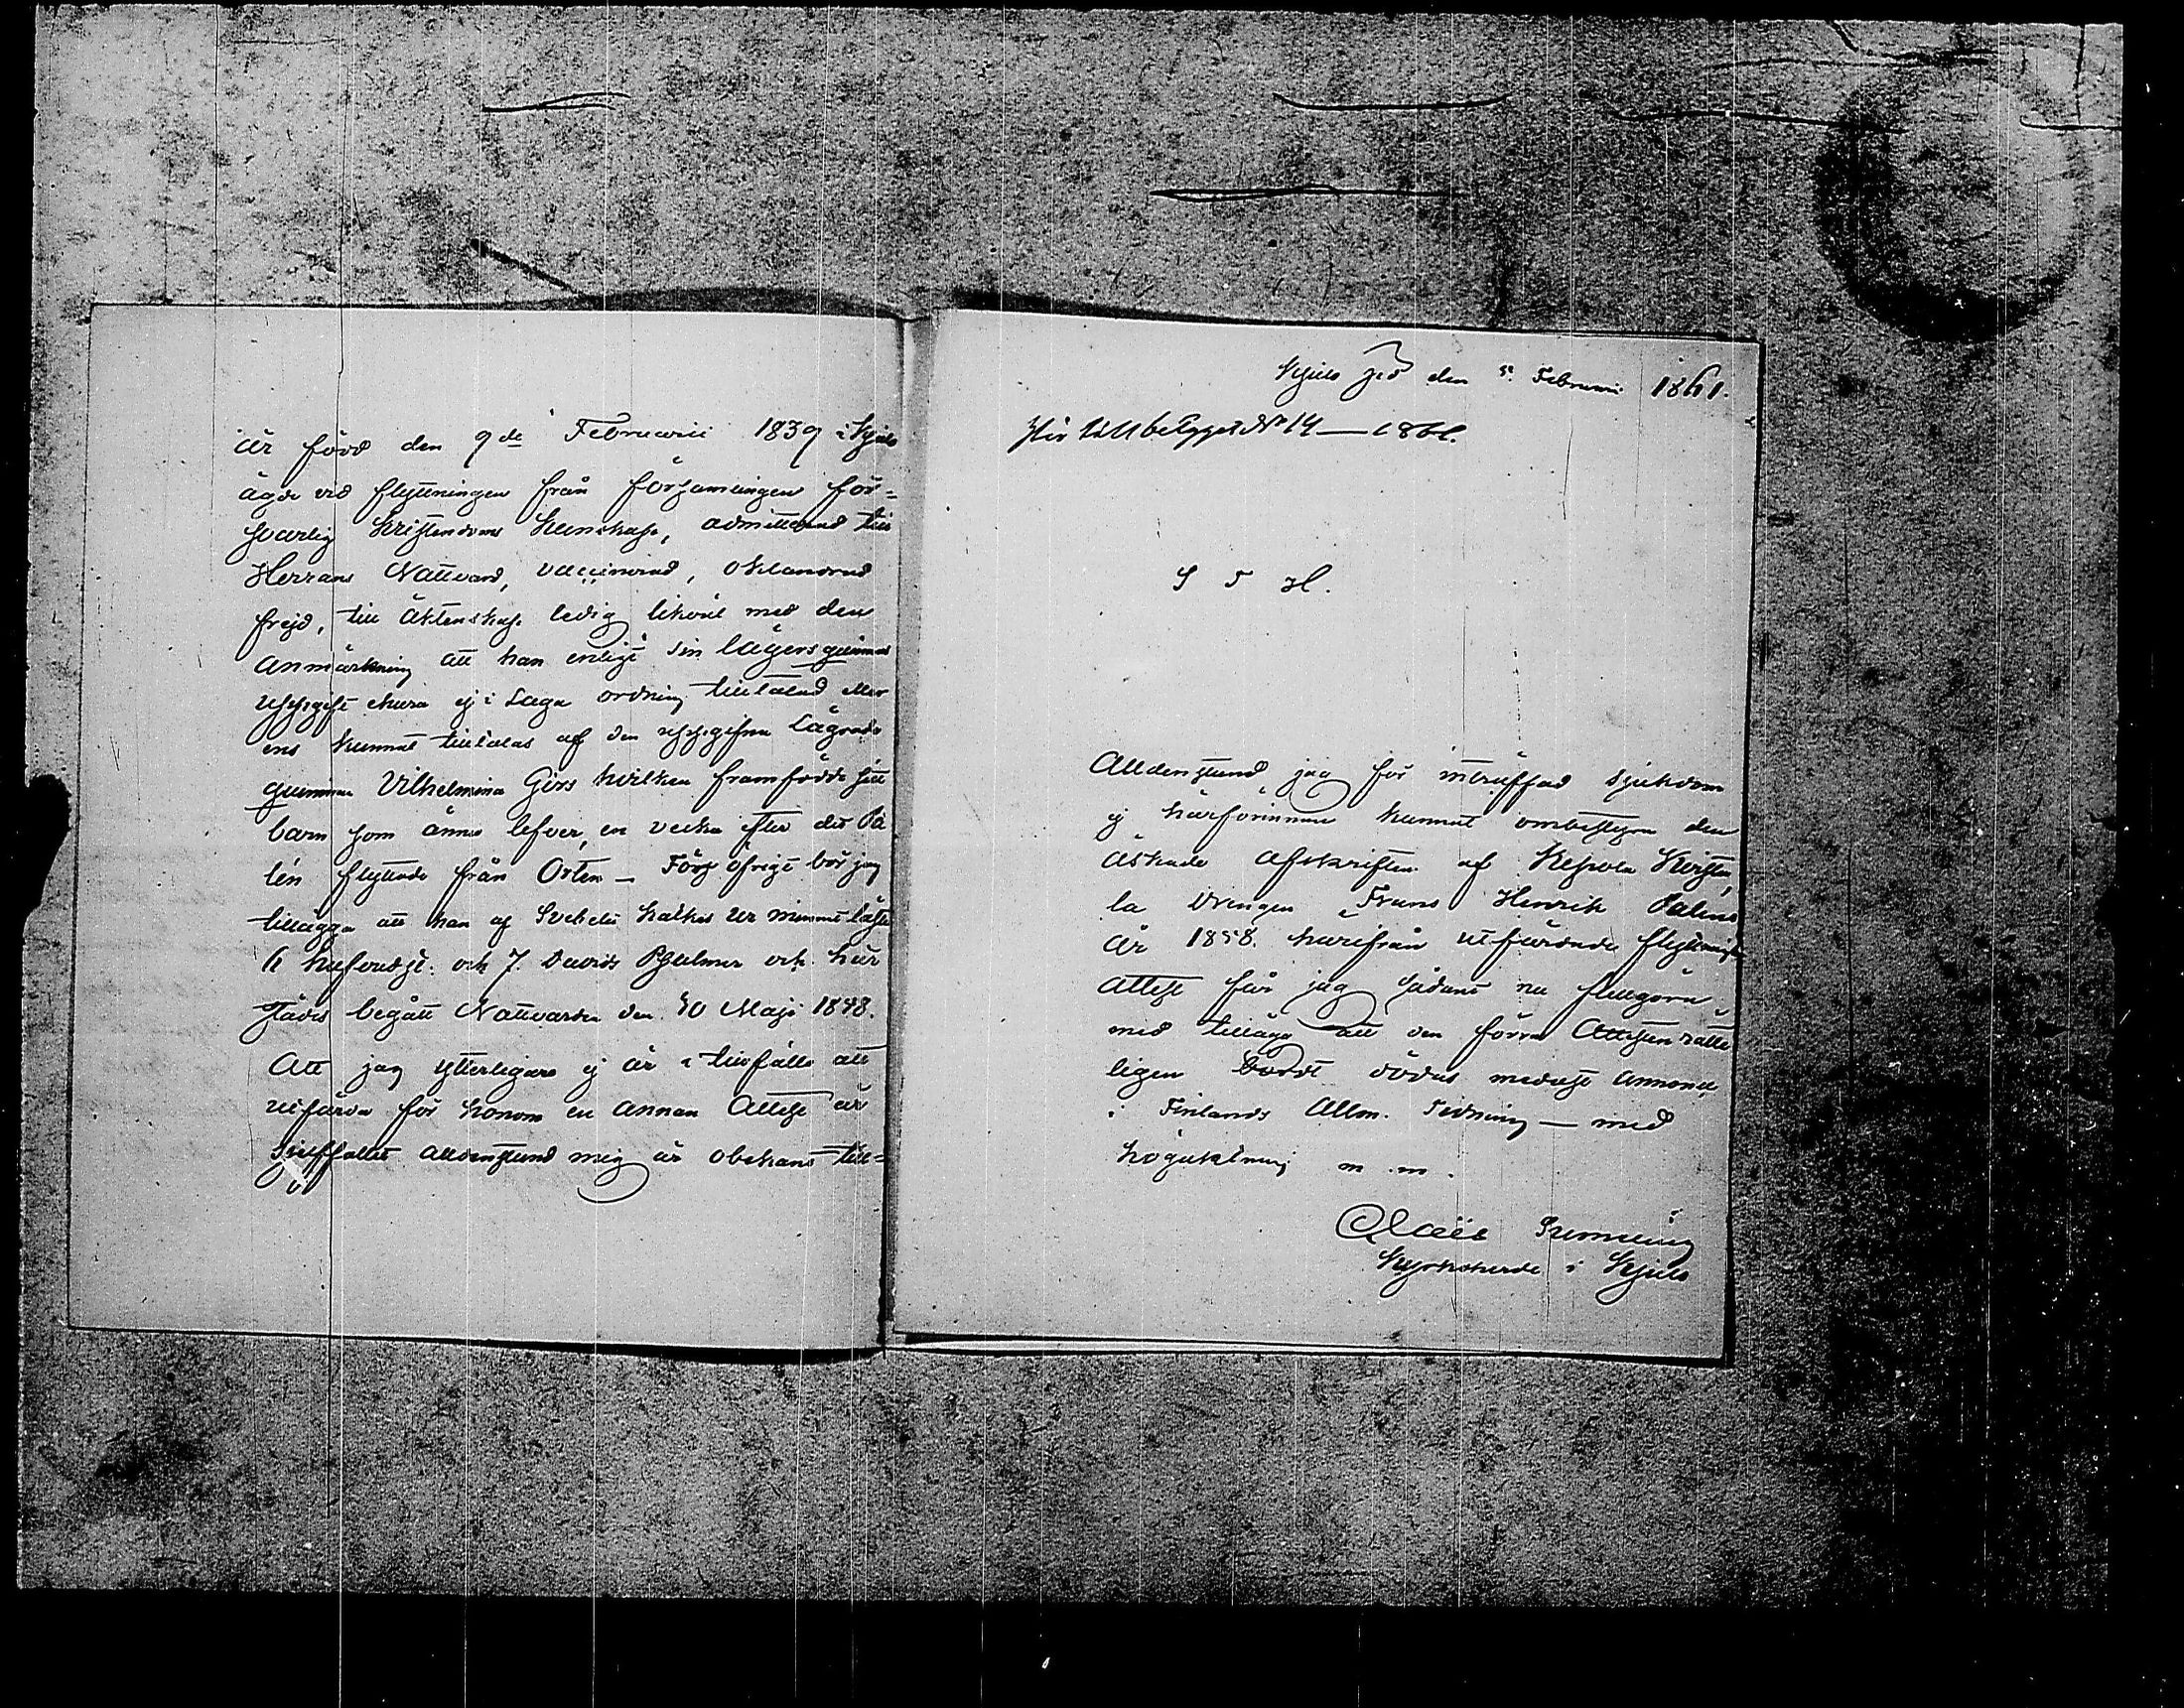 är född den 9de Februarii 1839 i Kjulo
ägde vid flyttningen från församlingen för=
svarlig Kristendoms kunskap, admitterad till
Herrans Nattvard, vaccinerad, oklandrad
frejd, till äktenskap ledig likväl med den
anmärkning att han enligt sin lägersqvinnas
uppgift ehuru ej i Laga ordning tilltalad eller
ens kunnat tilltalas af den uppgifna lägrade
qvinnan Vilhelmina Girs hvilken framfödde sitt
barn som ännu lefver, en vecka efter det Pa
lén flyttade från Orten — Förs öfrigt bör jag
tillägga att han af Svebelii Katkes ur minnet läste
6 hufvudst. och 7. Davids Psalmer och här
städes begått Nattvarden den 30 Maji 1858.
Att jag ytterligare ej är i tillfälle att
utfärda för honom en annan Attest är
sjelffallet alldenstund mig är obekant till=
Kjulo den 5. Februarii 1861.
Hör till belägget No 14 — 1861.
S T H.
Alldenstund jag för inträffad sjukdom
ej härförinnan kunnat ombestyra den
äskade afskriften af Kepola Kirsti,
la Drengen Frans Henrik Paléns
år 1858. härifrån utfärdade flyttnings
attest får jag sådant nu fullgöra
med tillägg att den förra Attesten rätte
ligen bordt dödas medelst annonce
i Finlands Allm. Tidning — med
högaktning m. m.
Kyrkoherde i Kjulo